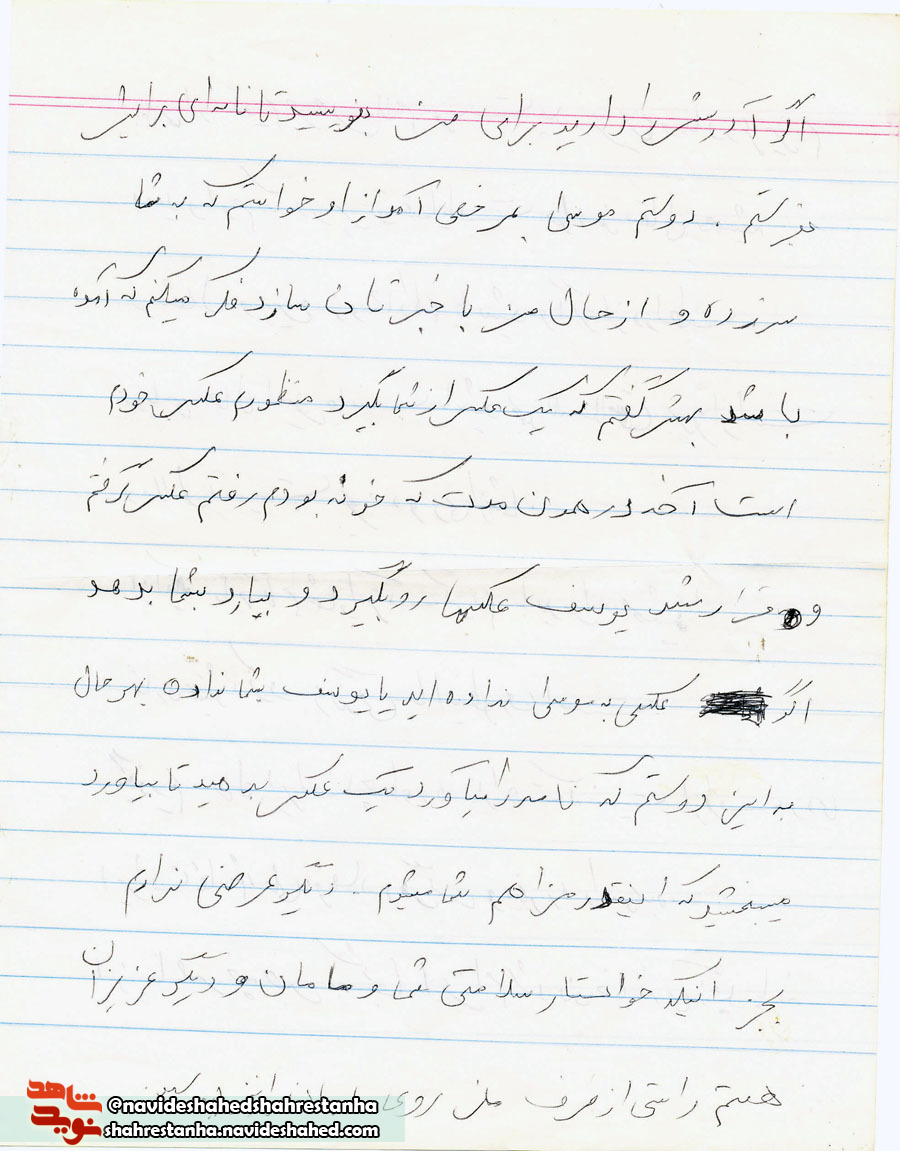 اگر آدرسش را دارید برای من بنویسید تا نامه‌ای برایش
بفرستم . دوستم موسی بمرخصی آمد از او خواستم که به شما
سرزده و از حال من با خبرتان سازد فکر میکنم که آمده
باشد بهش گفتم که یک عکس از شما بگیرد منظورم عکس خودم
است آخه در همون مدت که خونه بودم رفتم عکس گرفتم
و قرار شد یوسف عکسها رو بگیرد و بیارد بشما بدهد
اگر عکسی به موسی نداده اید یا یوسف بشما نداده بهرحال
به این دوستم که نامه را میآورد یک عکس بدهید تا بیاورد
میبخشید که اینقدر مزاحم شما میشوم . دیگر عرضی ندارم
بجز اینکه خواستار سلامتی شما و مامان و دیگر عزیزان
هستم راستی از طرف من روی
شاهد
نوید
@navideshahedshahrestanha
shahrestanha.navideshahed.com